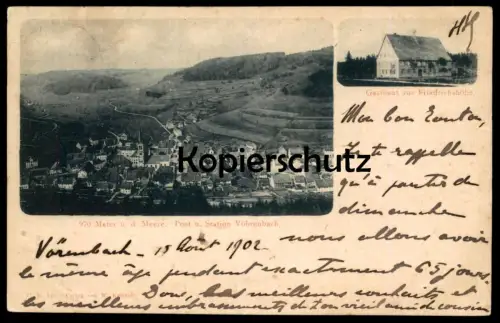 Gasthaus zur Friedrichshöhe.
Mon bon Tonton,
Je te rappelle
qu'à partir de
Kopierschutz
970 Meter ü. d. Meere. Post u. Station Vöhrenbach.
dimanche
Vörenbach - 15 Août 1902 nous allons avoir
le même âge pendant exactement 65 jours.
Donc, les meilleurs souhaits et
les meilleurs embrassements de ton vieil ami de cousin